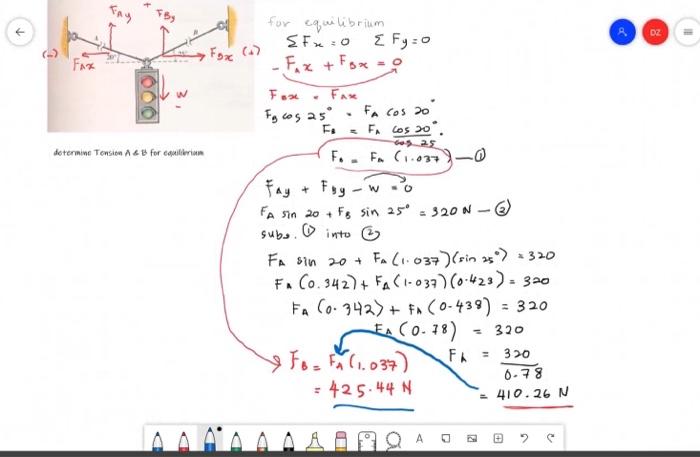 FAy + FBy
(-) FAx A B FBx (+)
20° 25°
W
-
determine Tension A & B for equilibrium
for equilibrium
ΣFx = 0 ΣFy = 0
- FAx + FBx = 0
FBx = FAx
FB cos 25° = FA cos 20°
FB = FA cos 20° / cos 25
FB = FA (1.037) — ①
FAy + FBy - W = 0
FA sin 20 + FB sin 25° = 320 N — ②
subs. ① into ②
FA sin 20 + FA (1.037)(sin 25°) = 320
FA (0.342) + FA (1.037)(0.423) = 320
FA (0.342) + FA (0.438) = 320
FA (0.78) = 320
FA = 320 / 0.78
= 410.26 N
FB = FA (1.037)
= 425.44 N
DZ
A